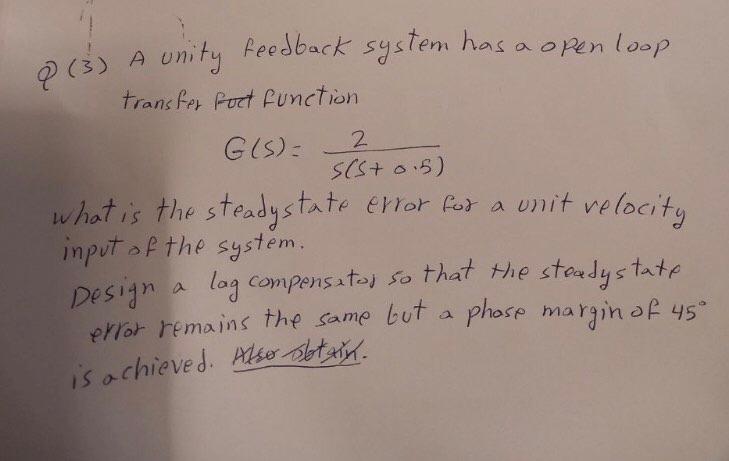 Q(3) A unity feedback system has a open loop
transfer function
G(s) = 2 / s(s+0.5)
what is the steadystate error for a unit velocity
input of the system.
Design a lag compensator so that the steadystate
error remains the same but a phase margin of 45°
is achieved. Also obtain.